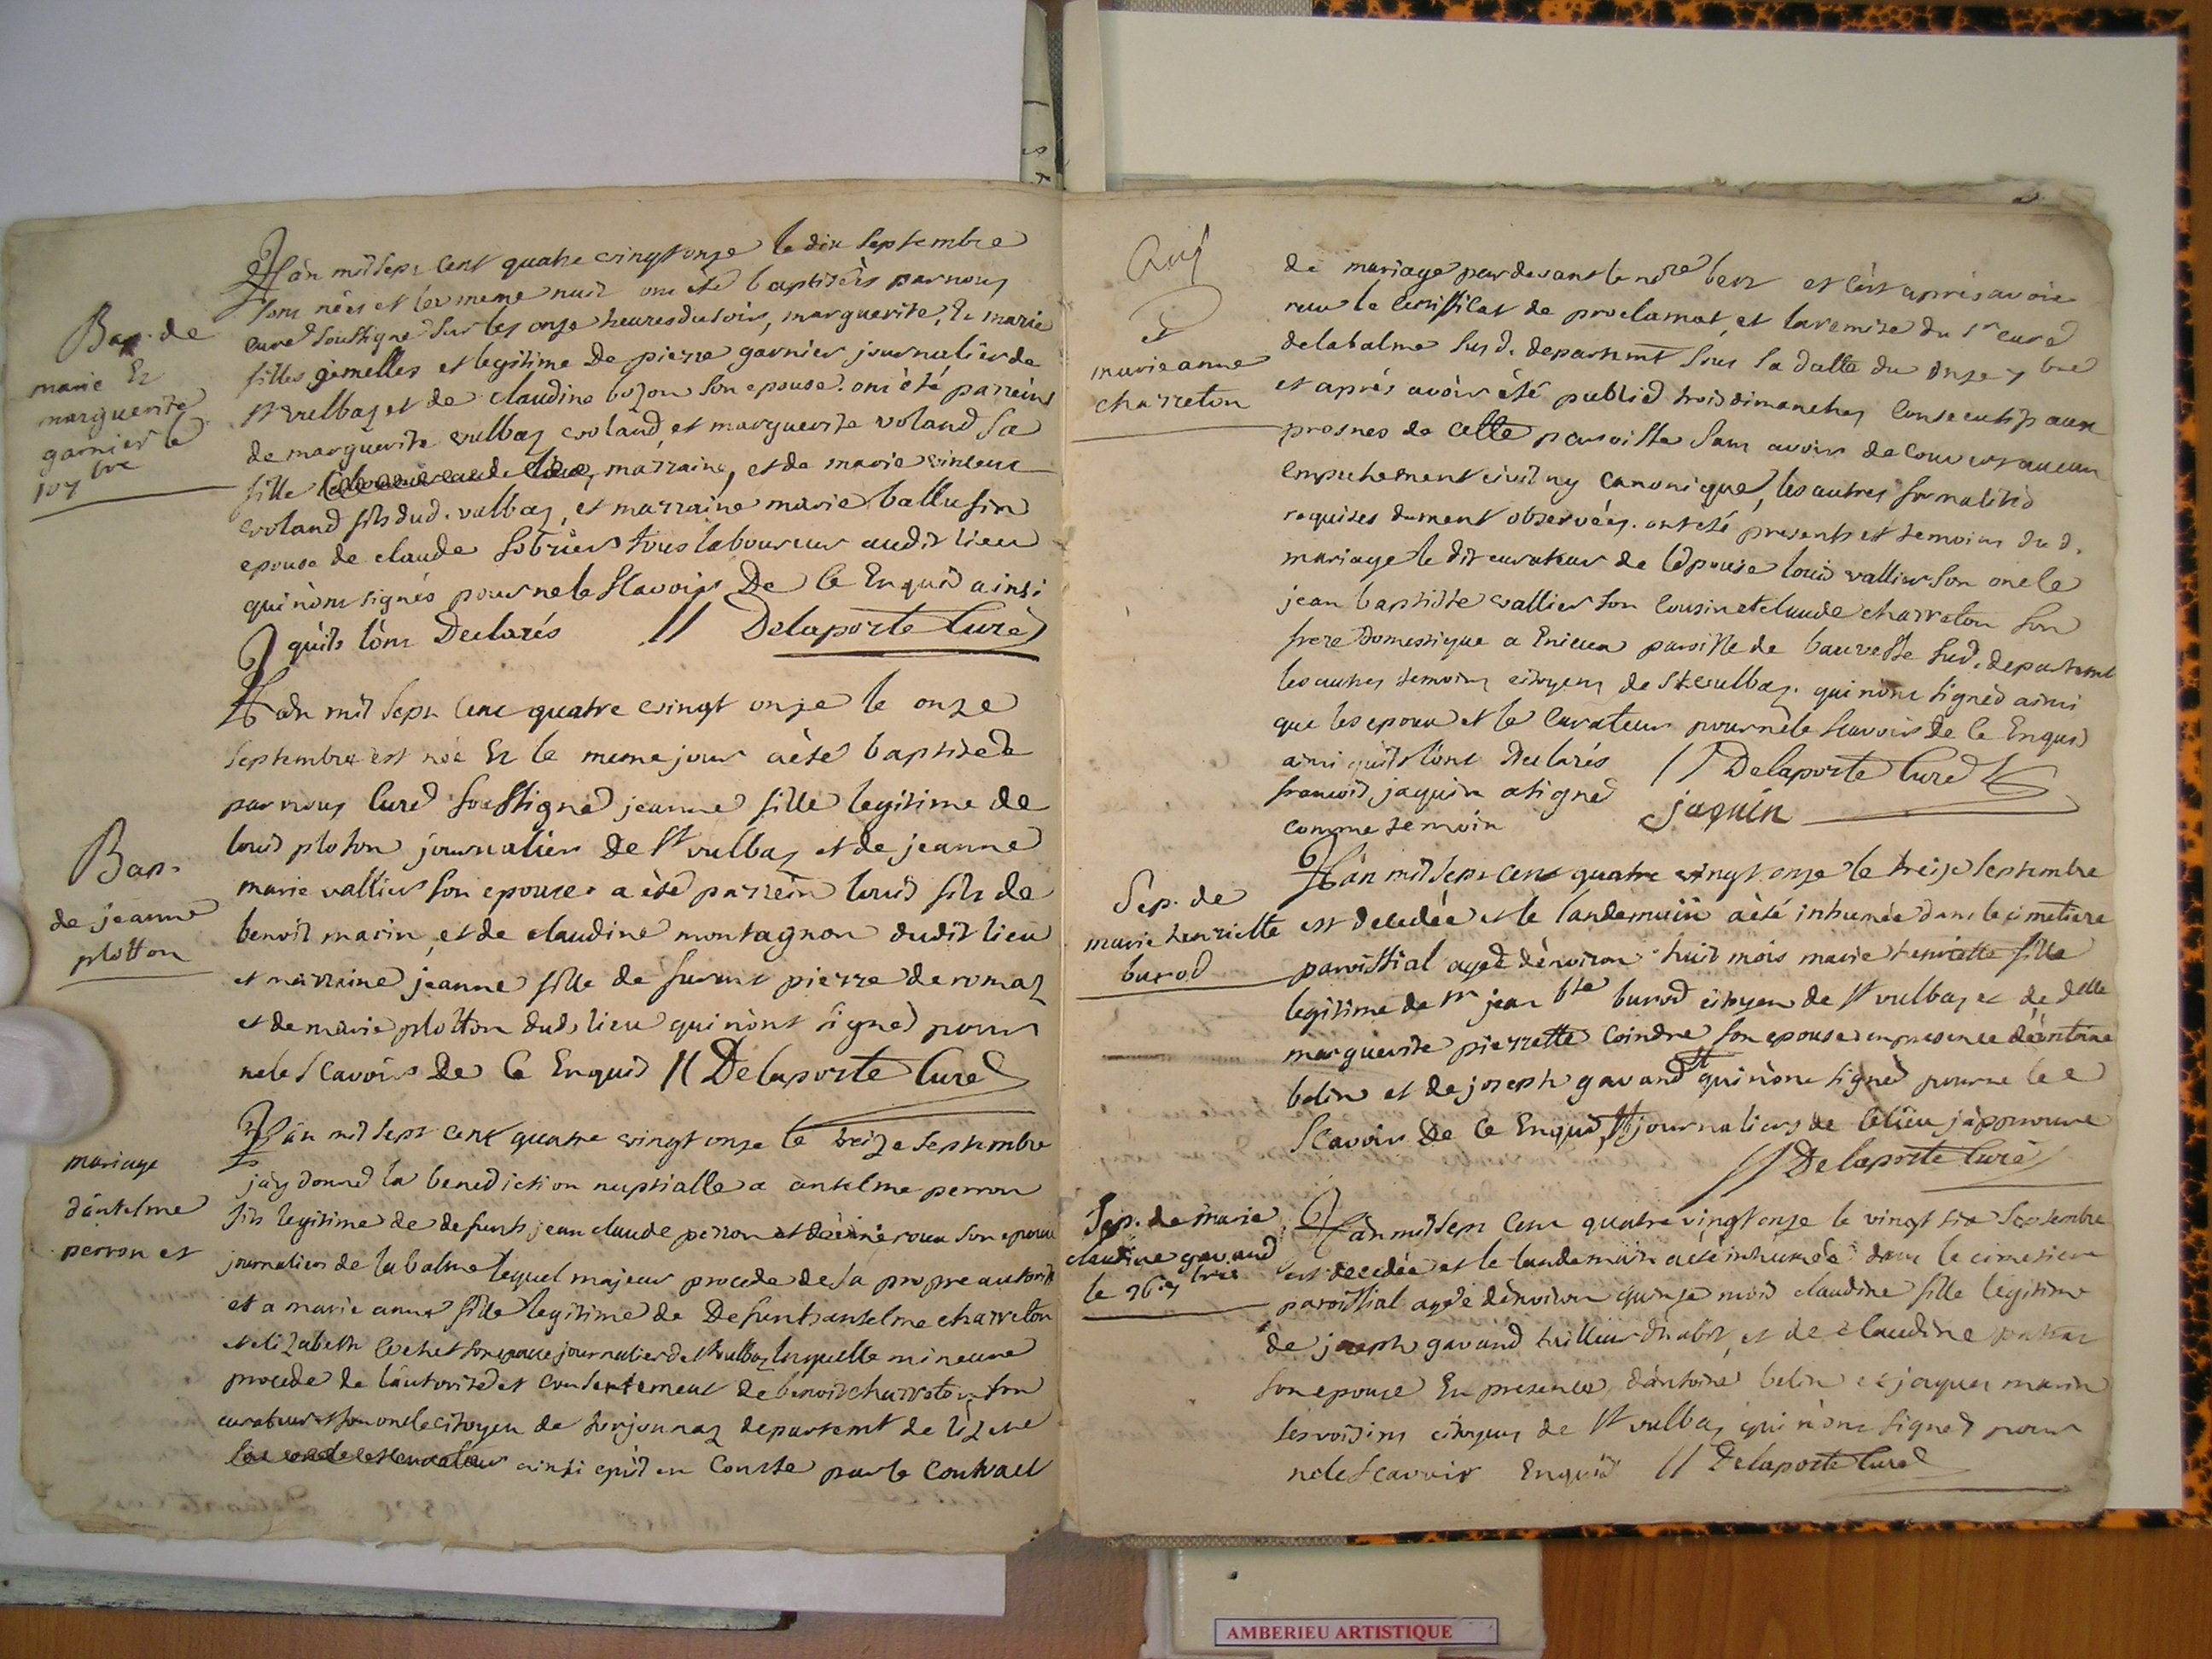 L'an mil sept cent quatre vingt onze le dix septembre
sont nées et la meme nuit ont été baptisées par nous
curé soussigné sur les onze heures du soir, marguerite, et marie
filles gemelles et legitime de pierre garnier journalier de
st vulbas et de claudine bozon son epouse. ont été parreins
de marguerite vulbas voland, et marguerite voland sa
fille marraine, et de marie vincent
voland fils dud. vulbas, et marraine marie ballufin
epouse de claude tous laboureurs audit lieu
qui n'ont signés pour ne le scavoir de ce Enquis ainsi
qu'ils l'ont Declarés // Delaporte Curé
Bap. de
marie Et
marguerite
garnier le
10 7bre
L'an mil sept cent quatre vingt onze le onze
septembre est née Et le meme jour a été baptisée
par nous Curé soussigné jeanne fille legitime de
louis ploton journalier de st vulbas et de jeanne
marie vallier son epouse. a été parrein louis fils de
benoit marin, et de claudine montagnon dudit lieu
et marraine jeanne fille de furent pierre deromaz
et de marie plotton dud. lieu qui n'ont signés pour
ne le scavoir De Ce Enquis // Delaporte Curé
Bap.
de jeanne
plotton
L'an mil sept cent quatre vingt onze le treize septembre
j'ay donné la benediction nuptialle a anselme perron
fils legitime de defunts jean claude perron et son epouse
journalier de la balme lequel majeur procede de sa propre autorité
et a marie anne fille legitime de Defunts anselme charreton
et elizabeth cochet son epouse journalier de st vulbas laquelle mineure
procede de l'autorité et consentement de benoit charreton son
curateur et son oncle citoyen de departemt de l'izere
ainsi qu'il en Conste par le Contract
mariage
d'anselme
perron et
de mariage par devant le nore et c'est après avoir
reçu le certifficat de proclamat. et la remise du sr curé
de la balme sus d. departemt sous la datte du onze 7bre
et après avoir été publié trois dimanches Consecutifs aux
prosnes de cette paroisse sans avoir decouvert aucun
empechement civil ny canonique, les autres formalités
requises dument observées. ont été presents et temoins du d.
mariage le dit curateur de l'épouse louis vallier son oncle
jean baptiste vallier son cousin et claude charreton son
frere domestique a paroisse de sud. departemt
les autres temoins citoyens de st vulbas. qui n'ont signés ainsi
que les epoux et le curateur pour ne le scavoir de Ce Enquis
ainsi qu'ils l'ont declarés // Delaporte Curé
françois jaquin a signé
comme temoin jaquin
marie anne
charreton
L'an mil sept cent quatre vingt onze le treize septembre
est decedée et le landemain a été inhumée dans le cimetiere
paroissial agée d'environ huit mois marie henriette fille
legitime de mr jean bte burod citoyen de st vulbas et de delle
marguerite pierrette Coindre son epouse en presence d'antoine
belin et de joseph gavand qui n'ont signés pour ne le
scavoir De Ce Enquis journaliers de ce lieu j'approuve
// Delaporte Curé
Sep. de
marie henriette
burod
L'an mil sept cent quatre vingt onze le vingt six septembre
est decedée et le landemain a été inhumée dans le cimetiere
paroissial agée d'environ quinze mois claudine fille legitime
de joseph gavand tailleur d'habit, et de claudine
son epouse En presence d'antoine belin et jaques marin
les voisins citoyens de st vulbas qui n'ont signés pour
ne le scavoir Enquis // Delaporte Curé
Sep. de marie
claudine gavand
le 26 7bre
AMBERIEU ARTISTIQUE